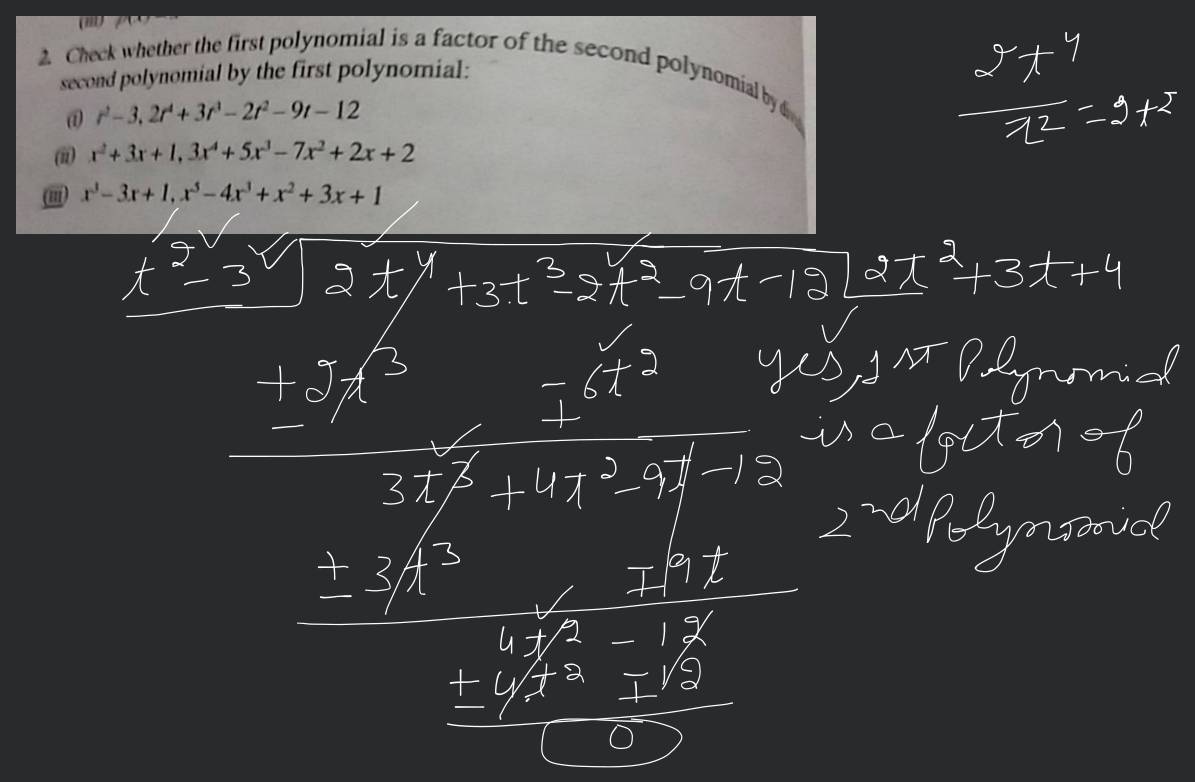 2. Check whether the first polynomial is a factor of the second polynomial by
second polynomial by the first polynomial:
(i) t² – 3, 2t⁴ + 3t³ – 2t² – 9t – 12
(ii) x² + 3x + 1, 3x⁴ + 5x³ – 7x² + 2x + 2
(iii) x³ – 3x + 1, x⁵ – 4x³ + x² + 3x + 1
2t⁴
/t² = 2t²
t² - 3 ) 2t⁴ + 3t³ - 2t² - 9t - 12 ( 2t² + 3t + 4
± 2t³ ∓ 6t²
3t³ + 4t² - 9t - 12
± 3t³ ∓ 9t
4t² - 12
± 4t² ∓ 12
0
yes, 1st Polynomial
is a factor of
2nd Polynomial